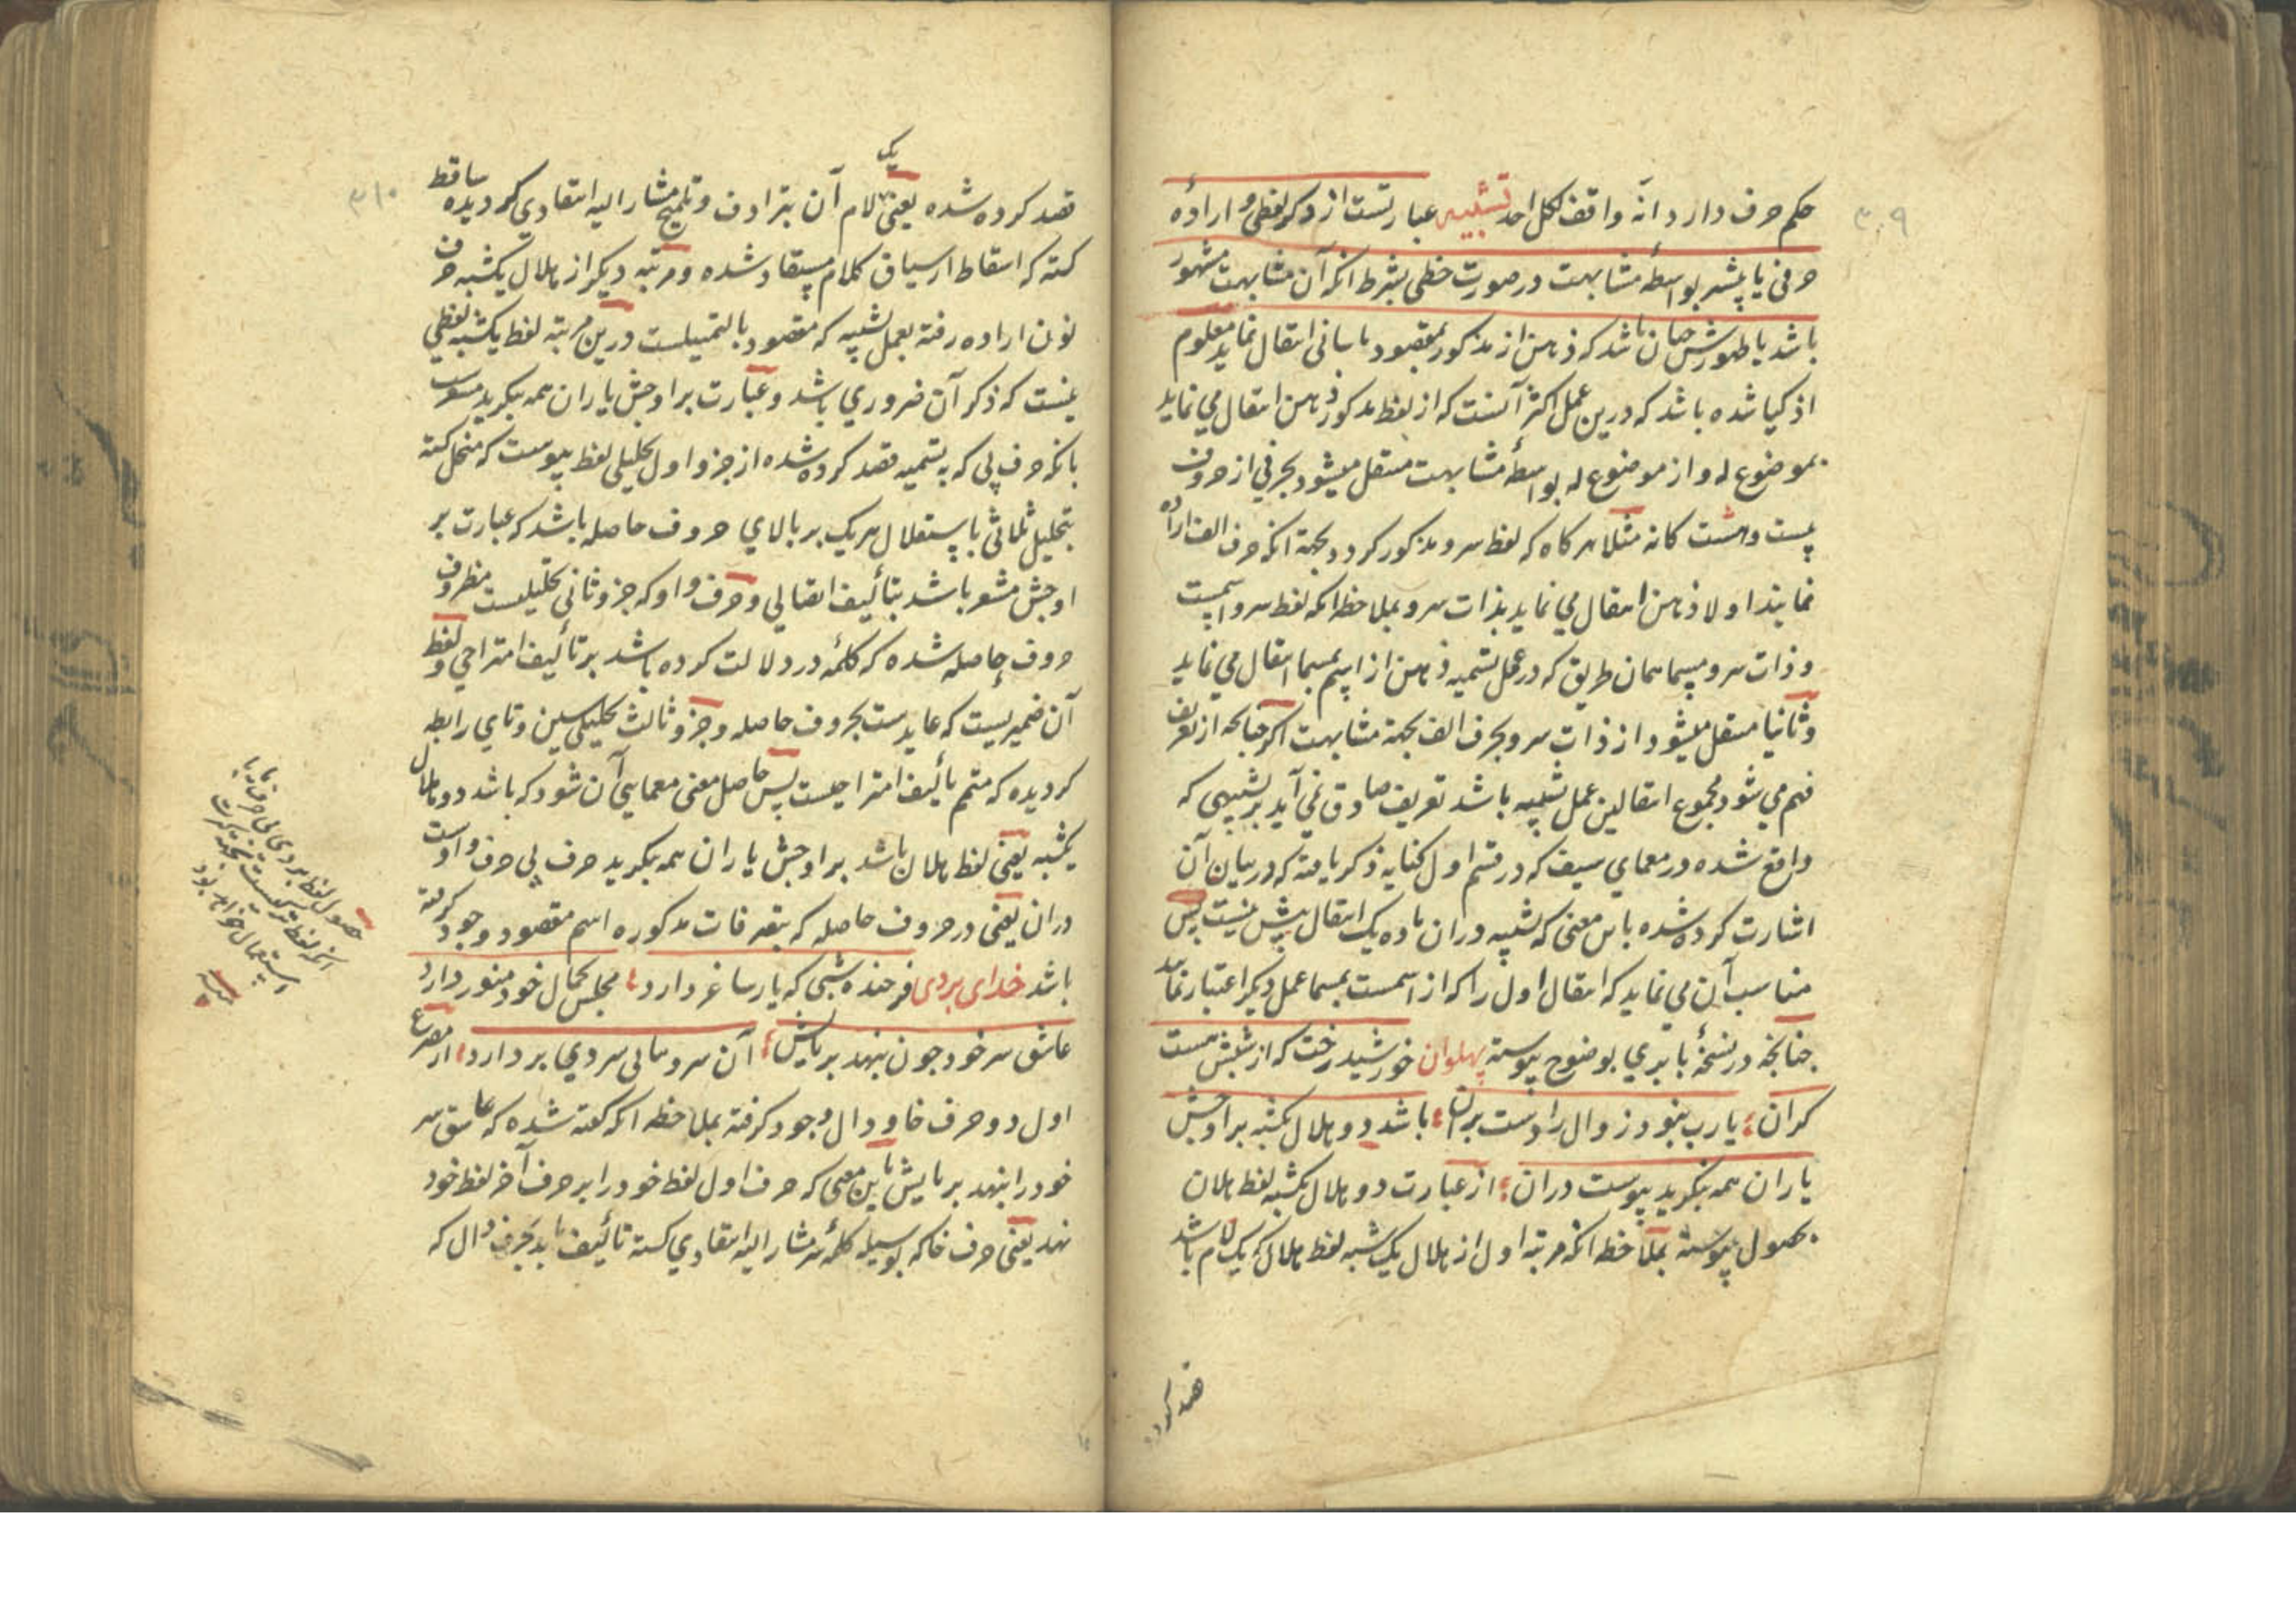 ۳۰۹
حکم حرف دارد انه واقف لکل احد تشبیه عبارتست از ذکر لفظی و اراده
حرفی یا بیشتر بواسطهٔ مشابهت در صورت خطی بشرط انکه آن مشابهت مشهور
باشد یا ظهورش چنان باشد که ذهن از مذکور بمقصود باسانی انتقال نماید معلوم
اذکیا شده باشد که درین عمل اکثر آنست که از لفظ مذکور ذهن انتقال می نماید
بموضوع له و از موضوع له بواسطهٔ مشابهت منتقل میشود بحرفی از حروف
بیست و هشت کانه مثلا هر کاه که لفظ سرو مذکور کردد بجهة انکه حرف الف اراده
نمایند اولا ذهن انتقال می نماید بذات سرو بملاحظه انکه لفظ سرو اسمیست
و ذات سرو مسما همان طریق که در عمل تسمیه ذهن از اسم بمسما انتقال می نماید
و ثانیا منتقل میشود از ذات سرو بحرف الف بجهة مشابهت اکر چنانچه از تعریف
فهم می شود مجموع انتقالین عمل تشبیه باشد تعریف صادق نمی آید بر تشبیهی که
واقع شده در معمای سیف که در قسم اول کنایه ذکر یافته که در بیان آن
اشارت کرده شده باین معنی که تشبیه دران ماده یک انتقال بیش نیست پس
مناسب آن می نماید که انتقال اول را که از اسمست بمسما عمل دیکر اعتبار نمایند
چنانچه در نسخهٔ بابری بوضوح پیوسته پهلوان خورشید رخت که از شبش هست
کران یارب نبود زوال را دست بران باشد دو هلال یکشبه بر اوجش
یاران همه بنکرید پیوست دران از عبارت دو هلال یکشبه لفظ هلان
بحصول پیوسته بملاحظه انکه مرتبه اول از هلال یک شبه لفظ هلال که یک لام باشد
قصد کرده
۳۱۰
یک
قصد کرده شده یعنی لام آن بترادف و تلمیح مشار الیه انتقادی کردیده ساقط
کشته که اسقاط از سیاق کلام مستفاد شده و مرتبه دیکر از هلال یکشبه حرف
نون اراده رفته بعمل تشبیه که مقصود بالتمثیلست درین مرتبه لفظ یکشبه لفظی
نیست که ذکر آن ضروری باشد و عبارت بر اوجش یاران همه بنکرید پیوست
بانکه حرف پی که به تسمیه قصد کرده شده از جزو اول تحلیلی لفظ پیوست که منحل کشته
بتحلیل ثلاثی باستقلال هر یک بر بالای حروف حاصله باشد که عبارت بر
اوجش مشعر باشد بتألیف اتصالی و حرف واو که جزو ثانی تحلیلیست مظروف
حروف حاصله شده که کلمهٔ در دلالت کرده باشد بر تألیف امتزاجی و لفظ
آن ضمیریست که عایدست بحروف حاصله و جزو ثالث تحلیلی سین و تای رابطه
کردیده که متمم تألیف امتزاجیست پس حاصل معنی معمایی آن شود که باشد دو هلال
یکشبه یعنی لفظ هلان باشد بر اوجش یاران همه بنکرید حرف پی حرف واوست
دران یعنی در حروف حاصله که بتصرفات مذکوره اسم مقصود وجود کرفته
باشد خدای بردی فرخنده شبی که یار ساغر دارد مجلس بجمال خود منور دارد
عاشق سر خود چون بنهد بر پایش آن سرو سهی سر دیی بر دارد از مصرع
اول دو حرف خا و دال وجود کرفته بملاحظه انکه کفته شده که عاشق سر
خود را بنهد بر پایش باین معنی که حرف اول لفظ خود را بر حرف آخر لفظ خود
نهد یعنی حرف خا که بوسیله کلمهٔ سر مشار الیه انتقادی کشته تألیف یابد بحرف دال که
حصول لفظ بردی
انکه لفظ
استعمال خواهد بود